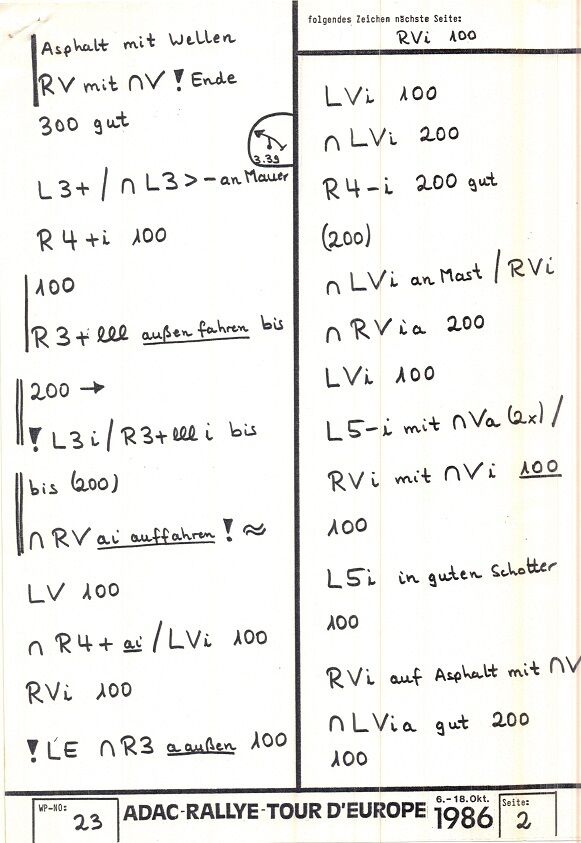 Asphalt mit Wellen
RV mit ∩V ! Ende
300 gut
3.39
L3+ / ∩ L3 > - an Mauer
R4+i 100
100
R3+ lll außen fahren bis
200 →
! L3i / R3+ lll i bis
bis (200)
∩ RV ai auffahren ! ≈
LV 100
∩ R4+ ai / LVi 100
RVi 100
! L'E ∩R3 a außen 100
folgendes Zeichen nächste Seite:
RVi 100
LVi 100
∩ LVi 200
R4-i 200 gut
(200)
∩ LVi an Mast / RVi
∩ RVia 200
LVi 100
L5-i mit ∩Va (2x) /
RVi mit ∩Vi 100
100
L5i in guten Schotter
100
RVi auf Asphalt mit ∩V
∩ LVia gut 200
100
WP-NO:
23
ADAC-RALLYE-TOUR D'EUROPE
6.-18.Okt.
1986
Seite:
2